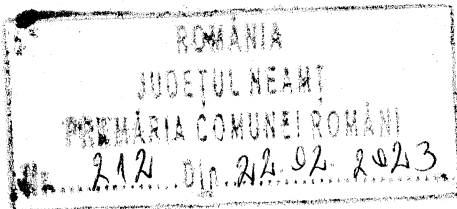 ROMÂNIA
JUDEȚUL NEAMȚ
PRIMĂRIA COMUNEI ROMÂNI
Nr. 212 Din 22.02.2023